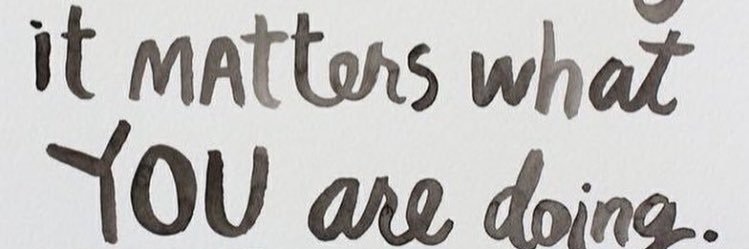 it MAtters what
YOU are doing.